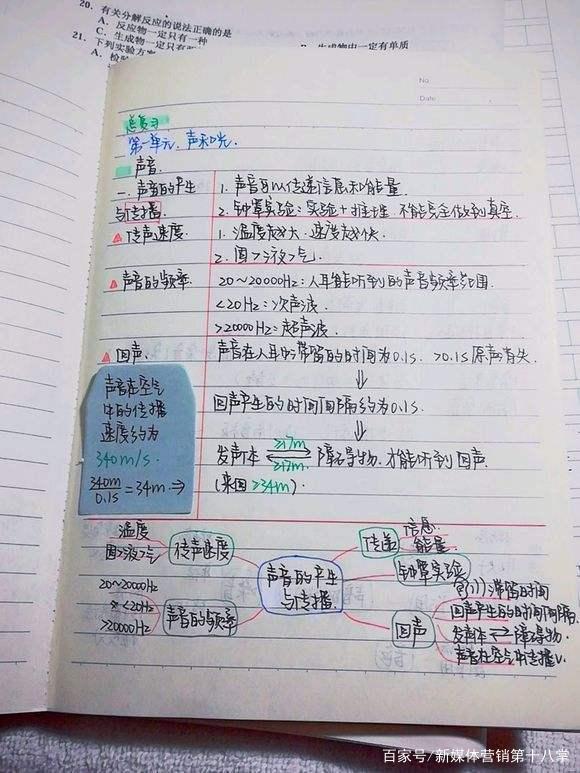 20. 有关分解反应的说法正确的是
A. 反应物一定只有一种
B. 生成物中一定有单质
C. 生成物一定只有
21. 下列实验方案
A. 检
No.
Date
总复习
第一单元. 声和光.
声音.
一. 声音的产生
与传播.
1. 声音可以传递信息和能量.
2. 钟罩实验: 实验+推理 不能完全做到真空.
传声速度.
1. 温度越大. 速度越快.
2. 固>液>气.
声音的频率.
20~20000Hz: 人耳能听到的声音频率范围.
<20Hz: 次声波.
>20000Hz: 超声波.
回声.
声音在人耳中滞留的时间为0.1s. >0.1s原声消失.
⇓
回声产生的时间间隔约为0.1s.
⇓
发声体 ≥17m ≥17m 障碍物. 才能听到回声.
(来回≥34m).
声音在空气
中的传播
速度约为
340m/s.
340m/0.1s=34m⇒
温度
固>液>气
传声速度
20~20000Hz
<20Hz
>20000Hz
声音的频率
声音的产生
与传播.
传递
信息
能量.
钟罩实验
回声
滞留时间
回声产生的时间间隔.
发声体⇌障碍物.
声音在空气中传播v.
百家号/新媒体营销第十八掌